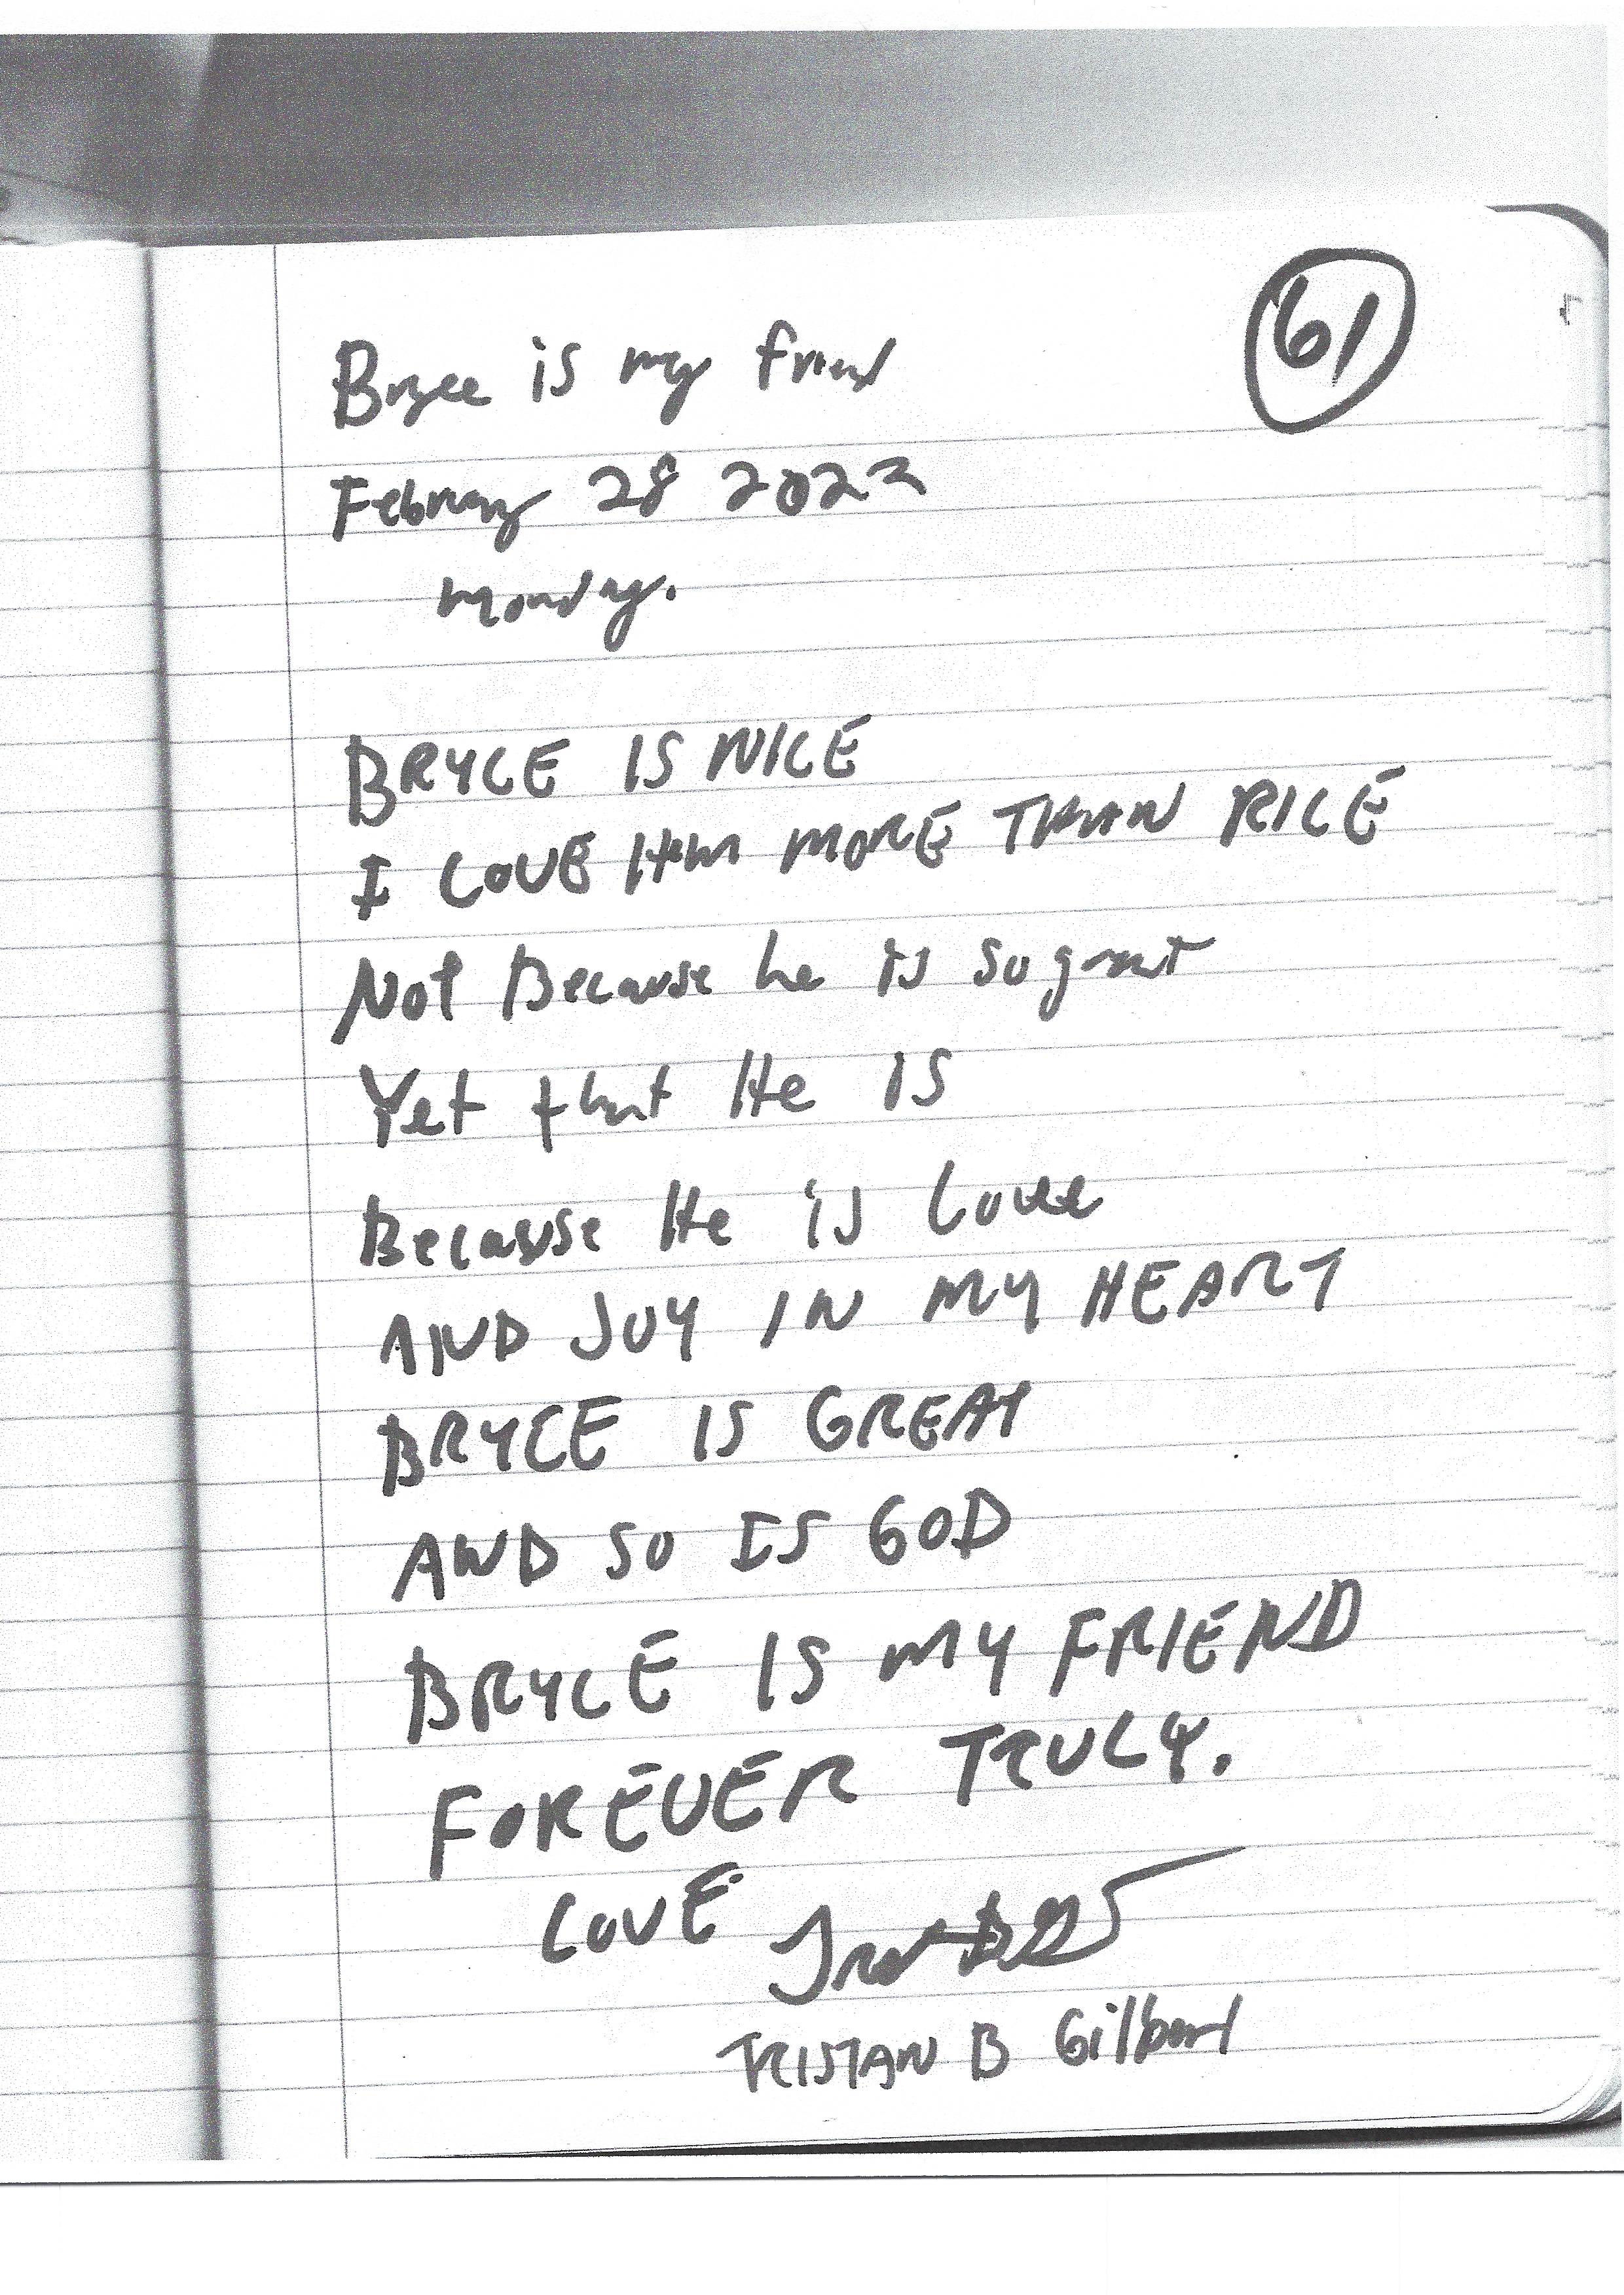 61
Bryce is my friend
February 28 2022
monday.
BRYCE IS NICE
I LOVE HIM MORE THAN RICE
Not Because he is so great
Yet that He IS
Because He is Love
AND JOY IN MY HEART
BRYCE IS GREAT
AND SO IS GOD
BRYCE IS MY FRIEND
FOREVER TRULY.
LOVE
TRISTAN B Gilbert